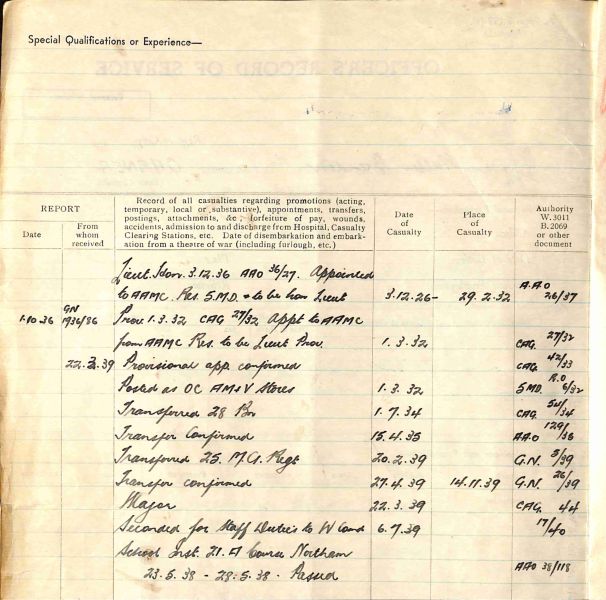 Special Qualifications or Experience—
REPORT
Date
From whom received
Record of all casualties regarding promotions (acting,
temporary, local or substantive), appointments, transfers,
postings, attachments, &c., forfeiture of pay, wounds,
accidents, admission to and discharge from Hospital, Casualty
Clearing Stations, etc. Date of disembarkation and embark-
ation from a theatre of war (including furlough, etc.)
Date of Casualty
Place of Casualty
Authority W.3011 B.2069 or other document
Lieut. Hon. 3.12.36 AAO 36/27. Appointed
to AAMC Res. 5.M.D. + to be hon Lieut 3.12.26- 29.2.32 A.A.O 26/37
1.10.36 GN 1936/86 Prov. 1.3.32 CAG 27/32 Appt to AAMC
from AAMC Res. to be Lieut Prov. 1.3.32 CAG 27/32
22.3.39 Provisional app. confirmed CAG 42/33
Posted as OC AM+V Stores 1.3.32 5MD R.O 6/32
Transferred 28 Bn 1.7.34 CAG 54/34
Transfer Confirmed 15.4.35 AAO 129/36
Transferred 25. M.G. Regt 20.2.39 G.N. 5/39
Transfer confirmed 27.4.39 14.11.39 G.N. 26/39
Major 22.3.39 CAG 44
Seconded for Staff Duties to W Comd 6.7.39 17/40
School Inst. 21. A Course Northam
23.5.38 - 28.5.38 - Passed AAO 38/118